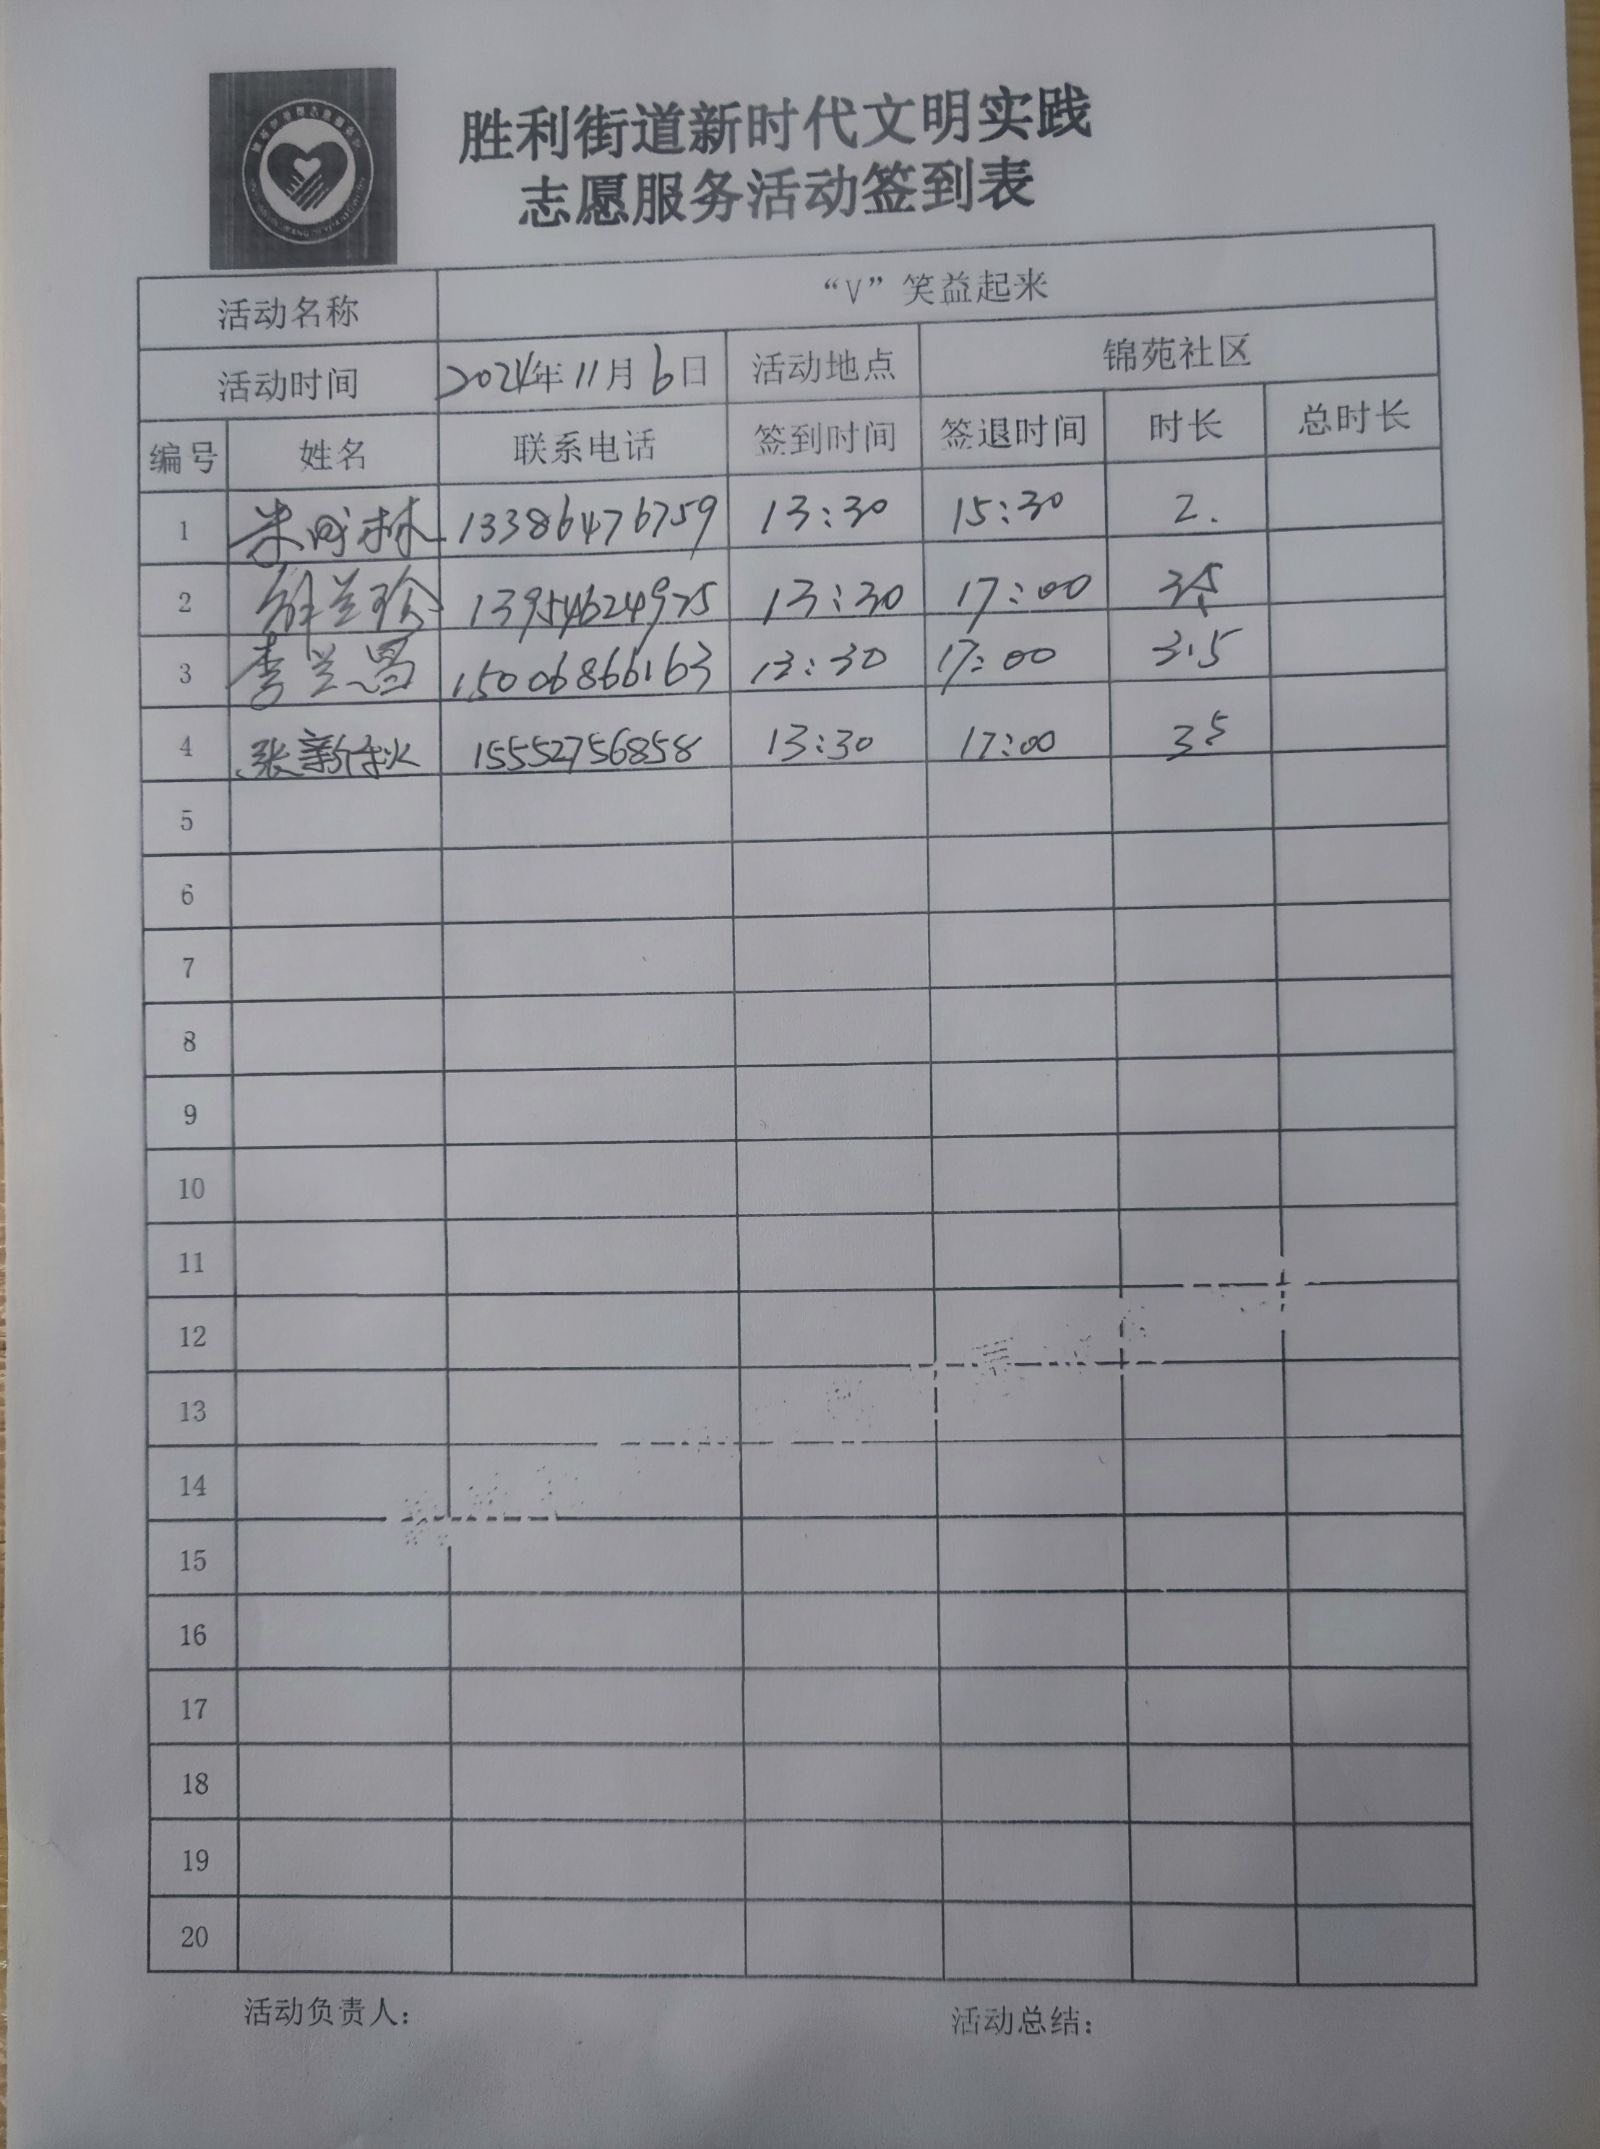 胜利街道新时代文明实践
志愿服务活动签到表
活动名称 “V”笑益起来
活动时间 2024年11月6日 活动地点 锦苑社区
编号 姓名 联系电话 签到时间 签退时间 时长 总时长
1 林 13386476759 13:30 15:30 2.
2 兰珍 13954624975 13:30 17:00 3.5
3 李兰 15006866163 13:30 17:00 3.5
4 张新秋 15552756858 13:30 17:00 3.5
5
6
7
8
9
10
11
12
13
14
15
16
17
18
19
20
活动负责人： 活动总结：